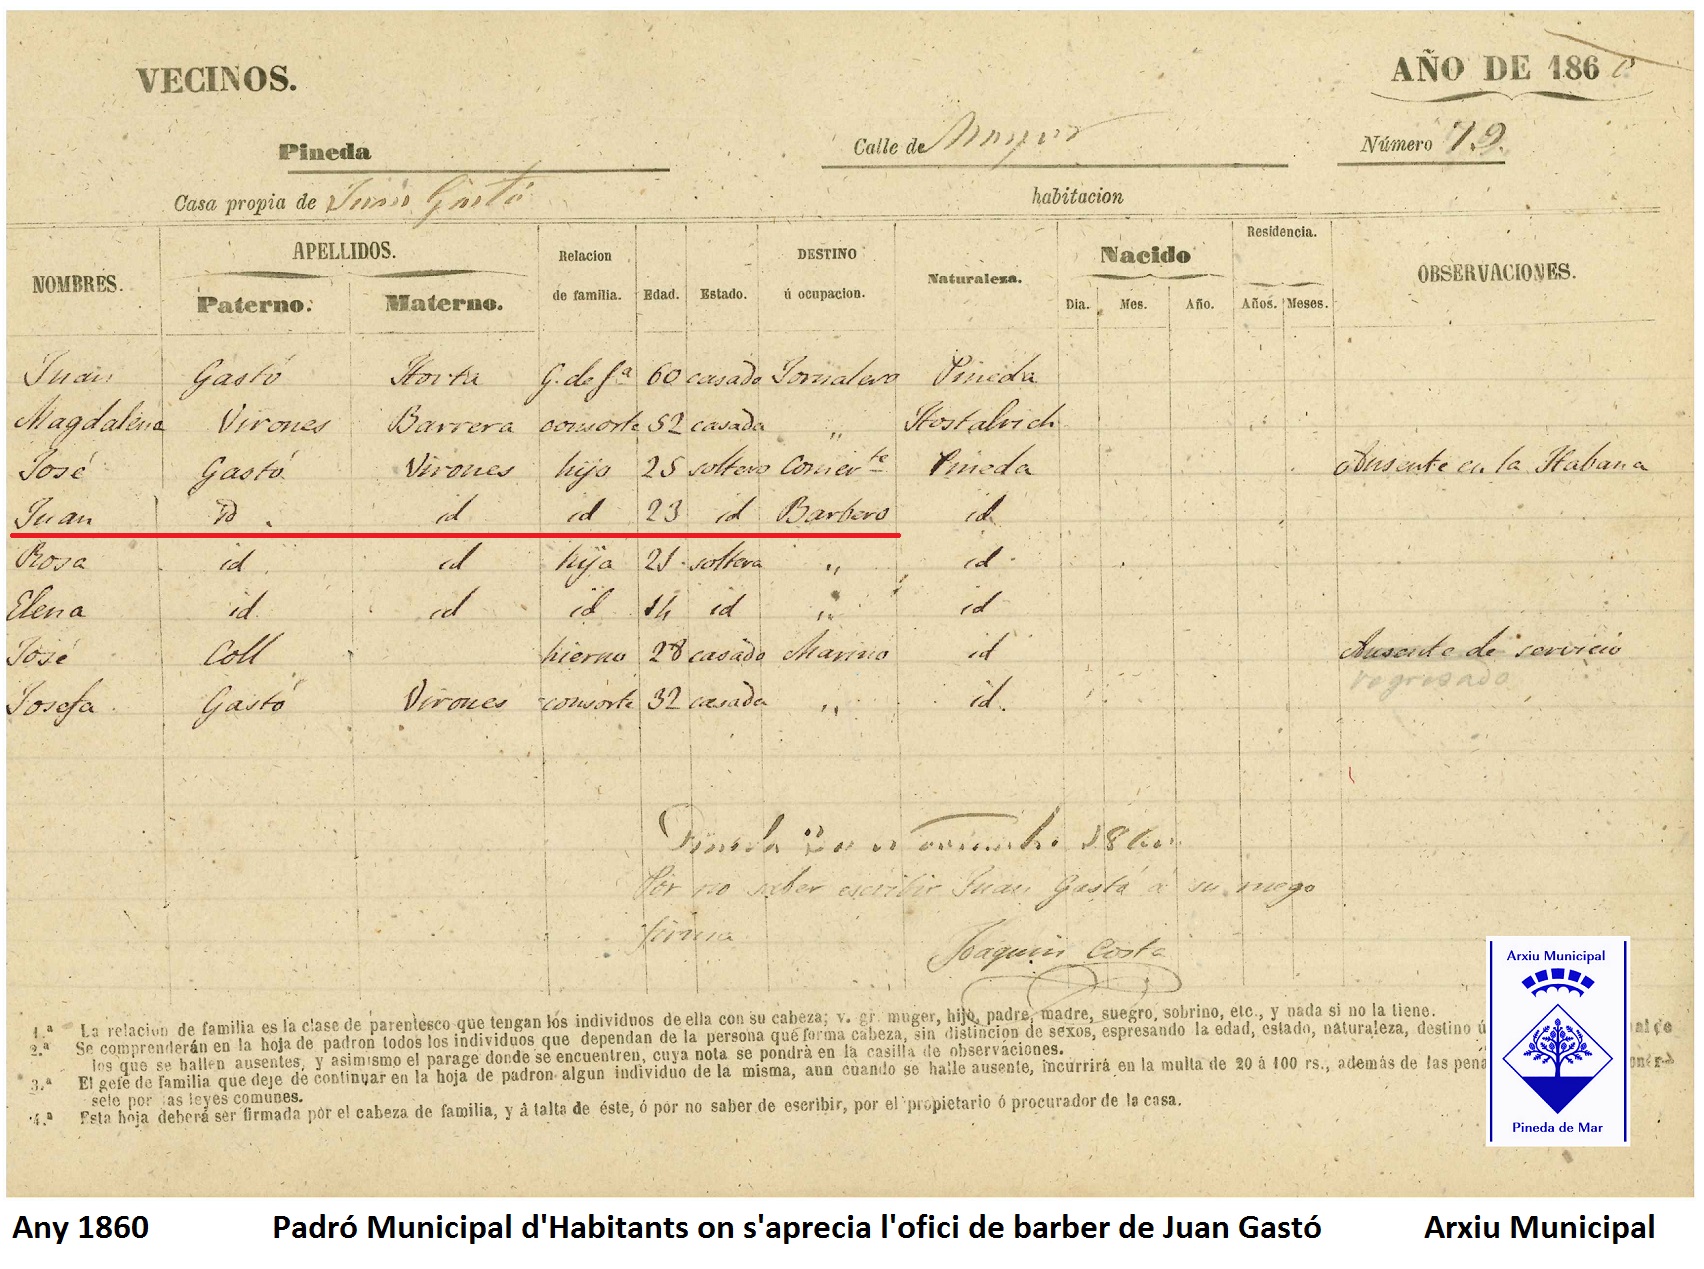 VECINOS.
AÑO DE 1860
Pineda
Calle de Mayor
Número 79.
Casa propia de Juan Gastó
habitacion
NOMBRES.
APELLIDOS.
Paterno.
Materno.
Relacion de familia.
Edad.
Estado.
DESTINO ú ocupacion.
Naturaleza.
Nacido
Dia.
Mes.
Año.
Residencia.
Años.
Meses.
OBSERVACIONES.
Juan Gastó Horta G. de fª 60 casado Jornalero Pineda
Magdalena Virones Barrera consorte 52 casada " Hostalrich
José Gastó Virones hijo 25 soltero Comerte Pineda Ausente en la Habana
Juan id id id 23 id Barbero id
Rosa id id hija 21 soltera " id
Elena id id id 14 id " id
José Coll hierno 28 casado Marino id Ausente de servicio
regresado
Josefa Gastó Virones consorte 32 casada " id.
Pineda 1860.
Por no saber escribir Juan Gastó á su ruego
firma
Joaquin Costa
1.ª La relacion de familia es la clase de parentesco que tengan los individuos de ella con su cabeza; v. gr. muger, hijo, padre, madre, suegro, sobrino, etc., y nada si no la tiene.
2.ª Se comprenderán en la hoja de padron todos los individuos que dependan de la persona que forma cabeza, sin distincion de sexos, espresando la edad, estado, naturaleza, destino ú
los que se hallen ausentes, y asimismo el parage donde se encuentren, cuya nota se pondrá en la casilla de observaciones.
3.ª El gefe de familia que deje de continuar en la hoja de padron algun individuo de la misma, aun cuando se halle ausente, incurrirá en la multa de 20 á 100 rs., además de las
sele por las leyes comunes.
4.ª Esta hoja deberá ser firmada por el cabeza de familia, y á falta de éste, ó por no saber de escribir, por el propietario ó procurador de la casa.
Arxiu Municipal
Pineda de Mar
Any 1860 Padró Municipal d'Habitants on s'aprecia l'ofici de barber de Juan Gastó Arxiu Municipal